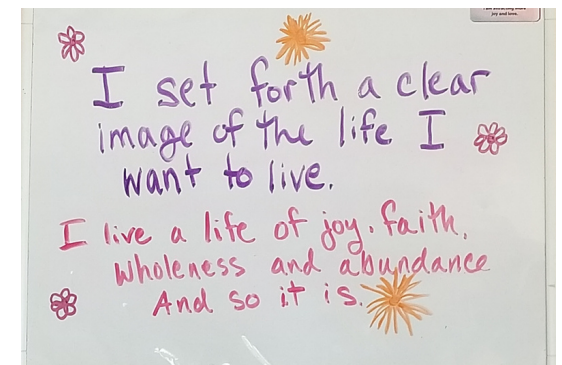 joy and love.
I set forth a clear
image of the life I
want to live.
I live a life of joy, faith,
wholeness and abundance
And so it is.